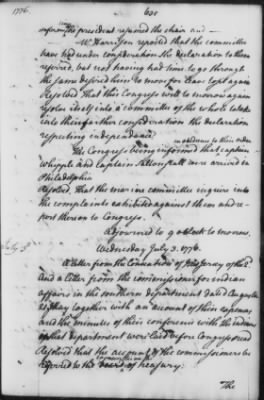 1776.
630
the president resumed the chair and
Mr Harrison reported that the committee
have had under consideration the declaration to them
referred, but not having had time to go through
the same desired him to move for leave to sit again
Resolved That this Congress will to morrow again
resolve itself into a committee of the whole to take
into their farther consideration the declaration
respecting independance
in obedience to their orders
The Congress being informed that captain
Whipple and captain Saltonstall were arrived in
Philadelphia
Resolved, That the marine committee enquire into
the complaints exhibited against them and re
port thereon to Congress.
Adjourned to 9 o Clock to morrow.
Wednesday July 3. 1776.
A Letter from the Convention of New Jersey of the 2.
and a letter from the commissioners for indian
affairs in the southern department dated
together with an account of their expences
and the minutes of their conferences with the indians
of that department were laid before Congress and
Resolved That the account of the commissioners be
referred to the board of treasury:
The